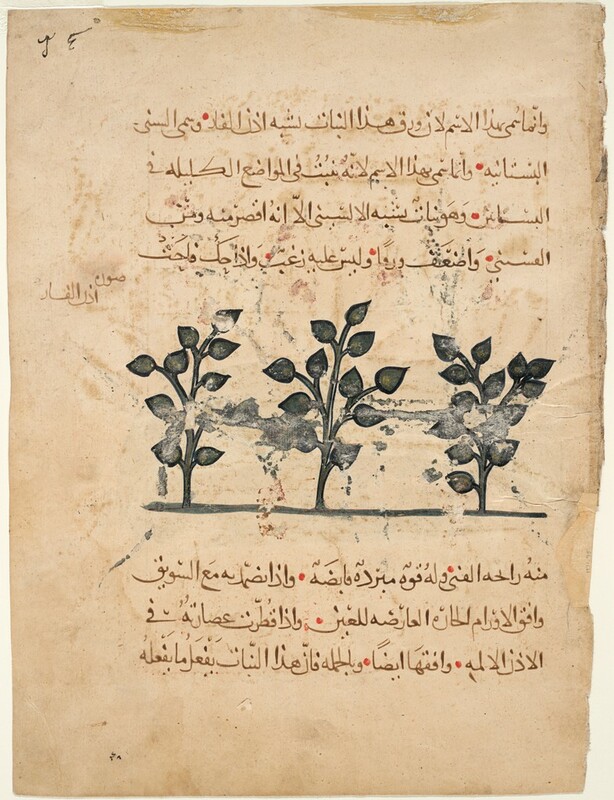 وانما سمى بهذا الاسم لان ورق هذا النبات يشبه اذن الفار وسمى السىى
البستانيه وانما سمى بهذا الاسم لانه ينبت فى المواضع الظليله فى
البساتين وهو نبات يشبه الالسينى الا انه اقصر منه ومن
واضعف ورقا وليس عليه زغب واذا حك فاحت
صورة
اذن الفار
منه رائحه القثى وله قوه مبرده قابضه واذا تضمد به مع السويق
وافق الاورام الحاره العارضه للعين واذا قطرت عصارته فى
الاذن الالمه وافقها ايضا وبالجمله فان هذا النبات يفعل ما يفعله